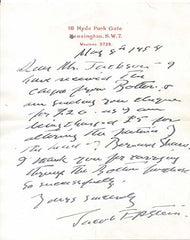 18 Hyde Park Gate
Kensington, S.W.7.
Western 3729.
May 8th 1958
Dear Mr. Jackson - I
have received the
cheque from Bolton &
am sending you cheque
for £20. as I am
being charged £5 for
altering the patina of
the head of Bernard Shaw.
I thank you for carrying
through the Bolton
so successfully.
Yours sincerely
Jacob Epstein